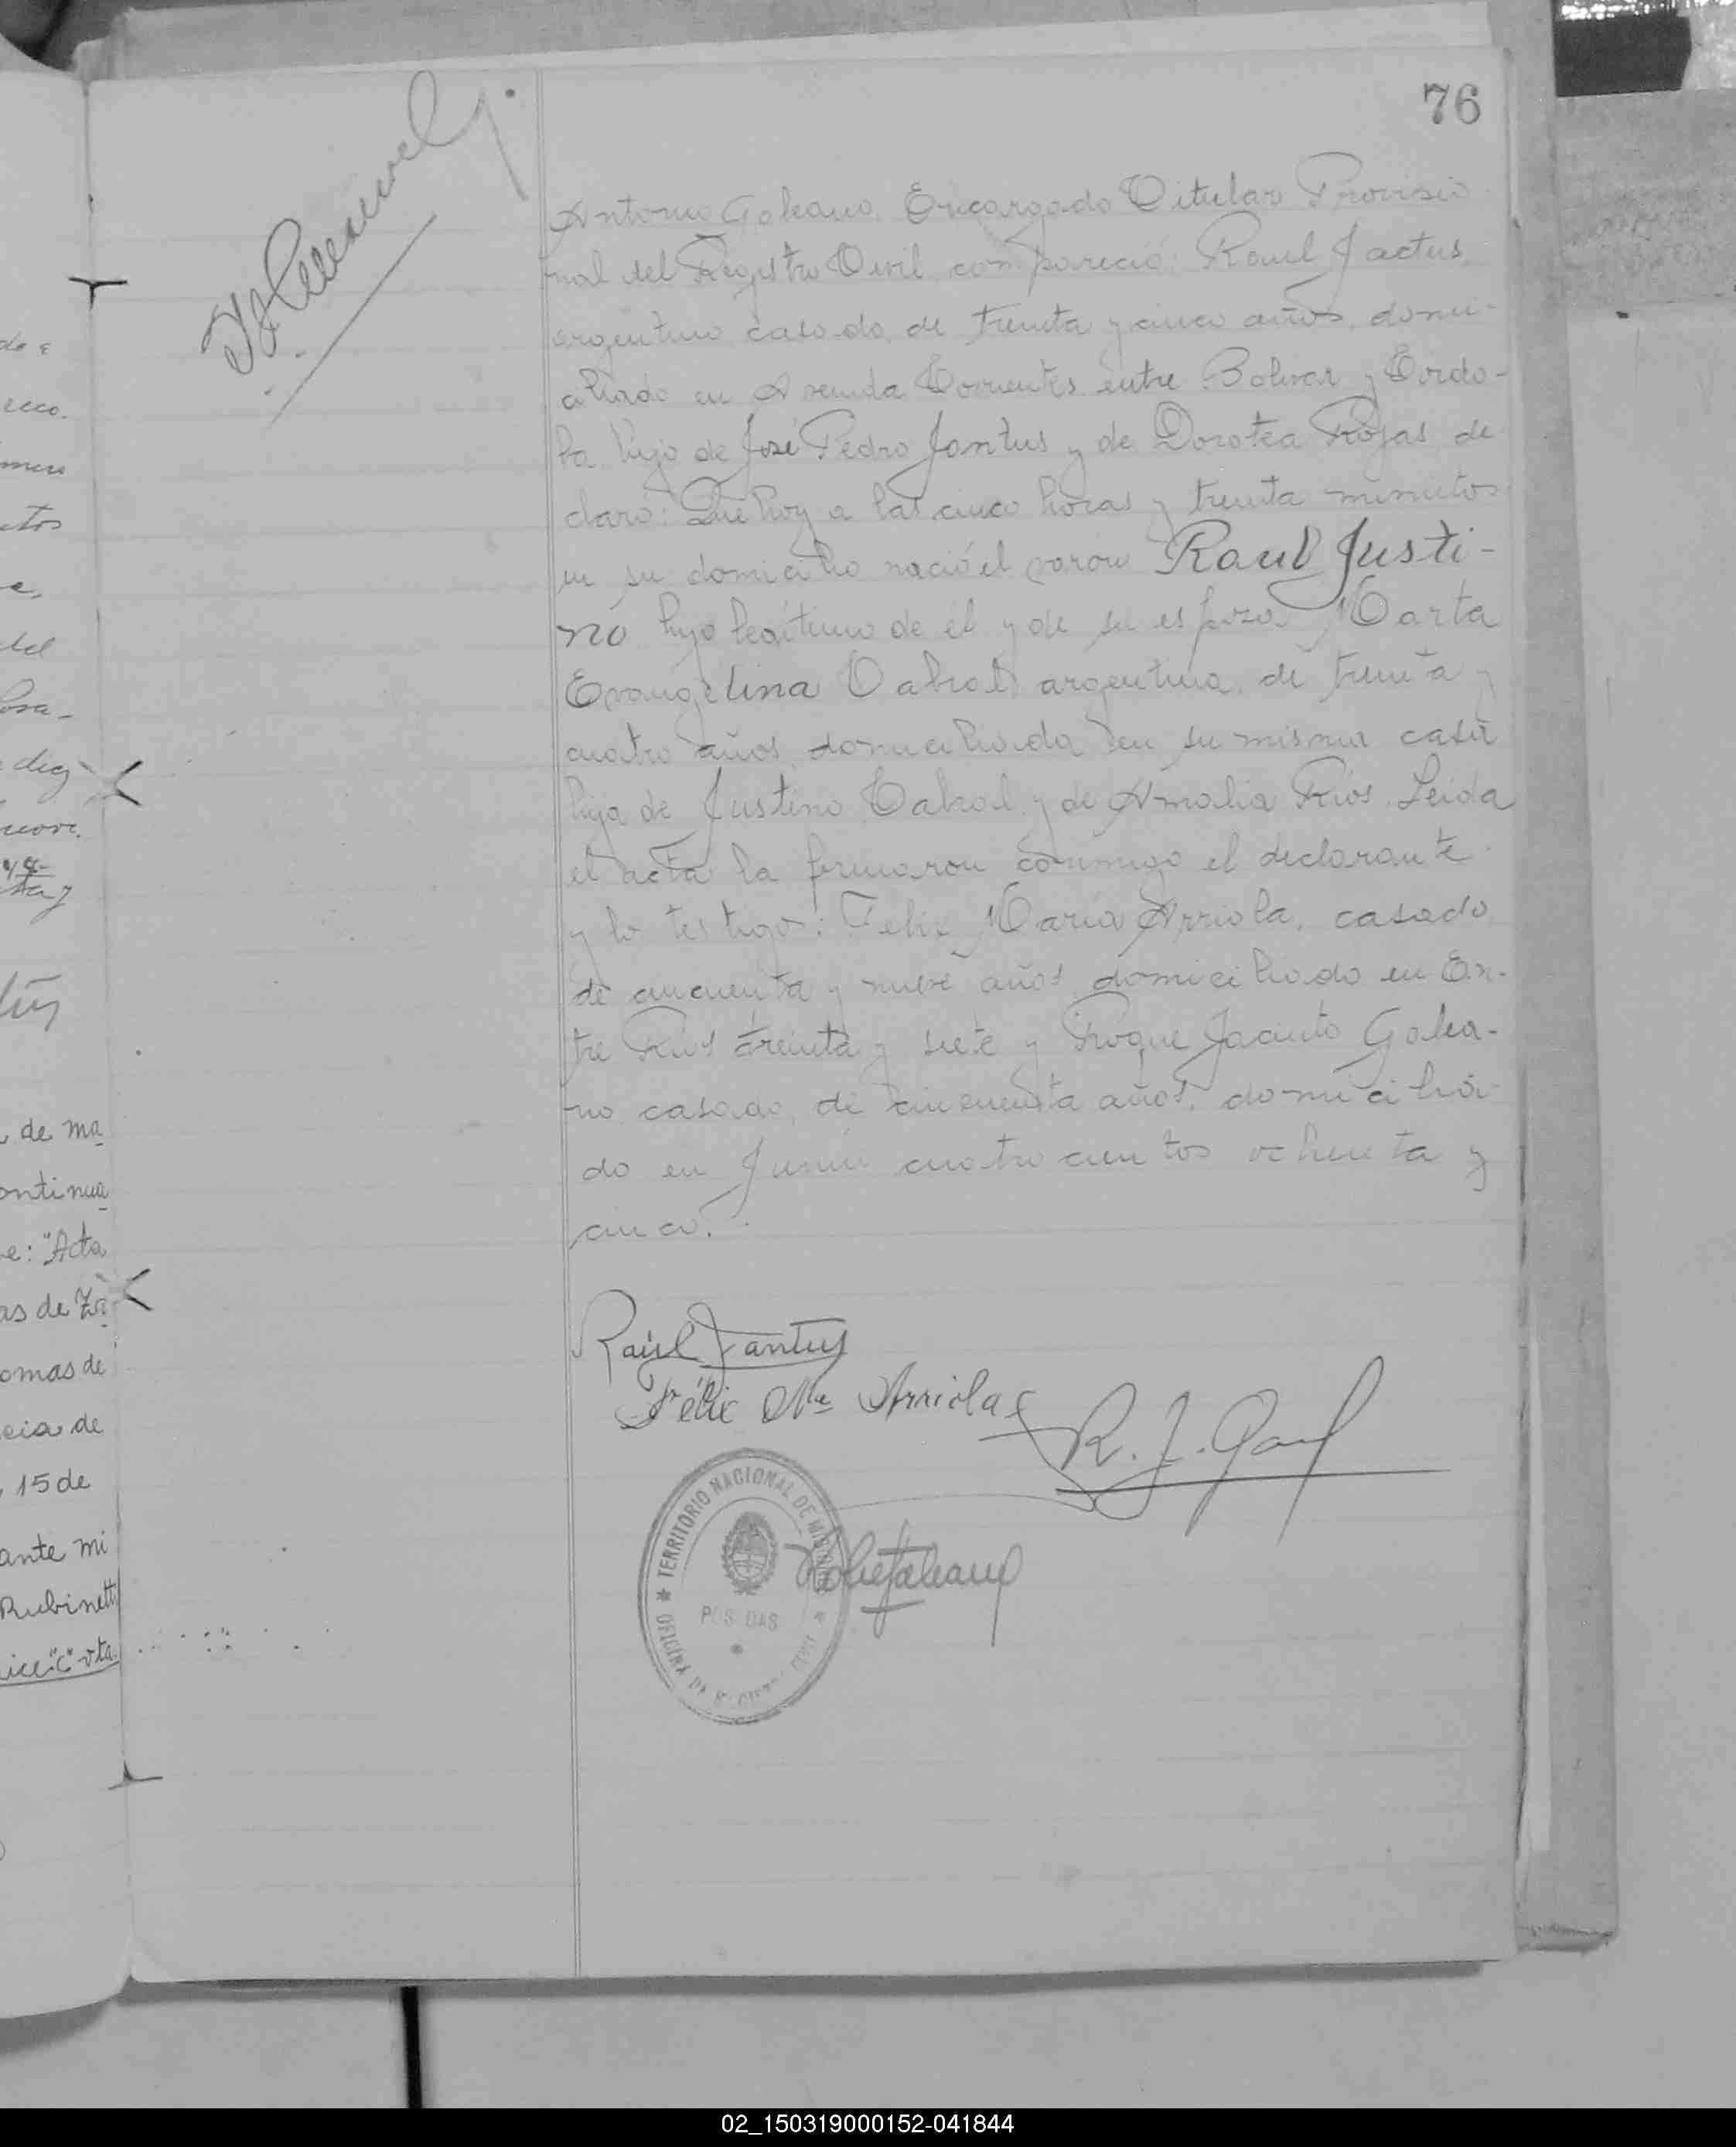 76
Antonio Galeano, Encargado Titular Provisio
nal del Registro Civil, compareció: Raul Jactus,
argentino casado, de treinta y cinco años, domi-
ciliado en Avenida Corrientes entre Bolivar y Cordo-
ba hijo de José Pedro Jantus y de Dorotea Rojas, de
claró: Que hoy a las cinco horas y treinta minutos
en su domicilio nació el varón Raul Justi-
no hijo legítimo de él y de su esposa Marta
Evangelina Cabral, argentina, de treinta y
cuatro años, domiciliada en su misma casa
hija de Justino Cabral y de Amalia Rios. Leida
el acta la firmaron conmigo el declarante
y lo testigos: Felix María Arriola, casado
de cincuenta y nueve años, domiciliado en En-
tre Rios treinta y siete y Roque Jacinto Galea-
no, casado, de cincuenta años, domicilia-
do en Junin cuatrocientos ochenta y
cinco.
Raúl Jantus
Félix Ma Arriola
R. J. Gal
TERRITORIO NACIONAL DE MISIONES
POSADAS
OFICINA
de ma
ontinua
e: "Acta
as de
omas de
cia de
, 15 de
ante mi
Rubinetti
ice "C" vta.
02_150319000152-041844